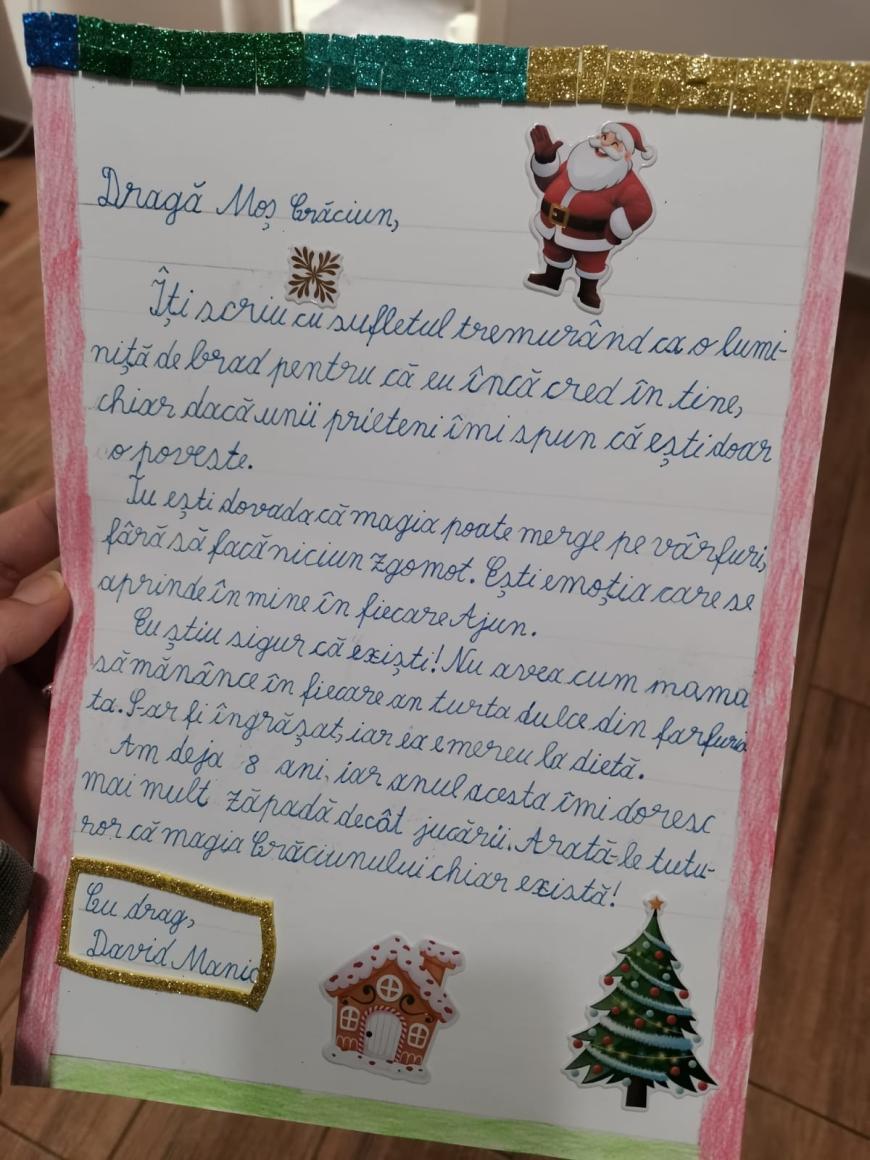 Dragă Moș Crăciun,
Îți scriu cu sufletul tremurând ca o lumi-
niță de brad pentru că eu încă cred în tine,
chiar dacă unii prieteni îmi spun că ești doar
o poveste.
Tu ești dovada că magia poate merge pe vârfuri,
fără să facă niciun zgomot. Ești emoția care se
aprinde în mine în fiecare Ajun.
Eu știu sigur că exiști! Nu avea cum mama
să mănânce în fiecare an turta dulce din farfuria
ta. S-ar fi îngrășat, iar ea e mereu la dietă.
Am deja 8 ani, iar anul acesta îmi doresc
mai mult zăpadă decât jucării. Arată-le tutu-
ror că magia Crăciunului chiar există!
Cu drag,
David